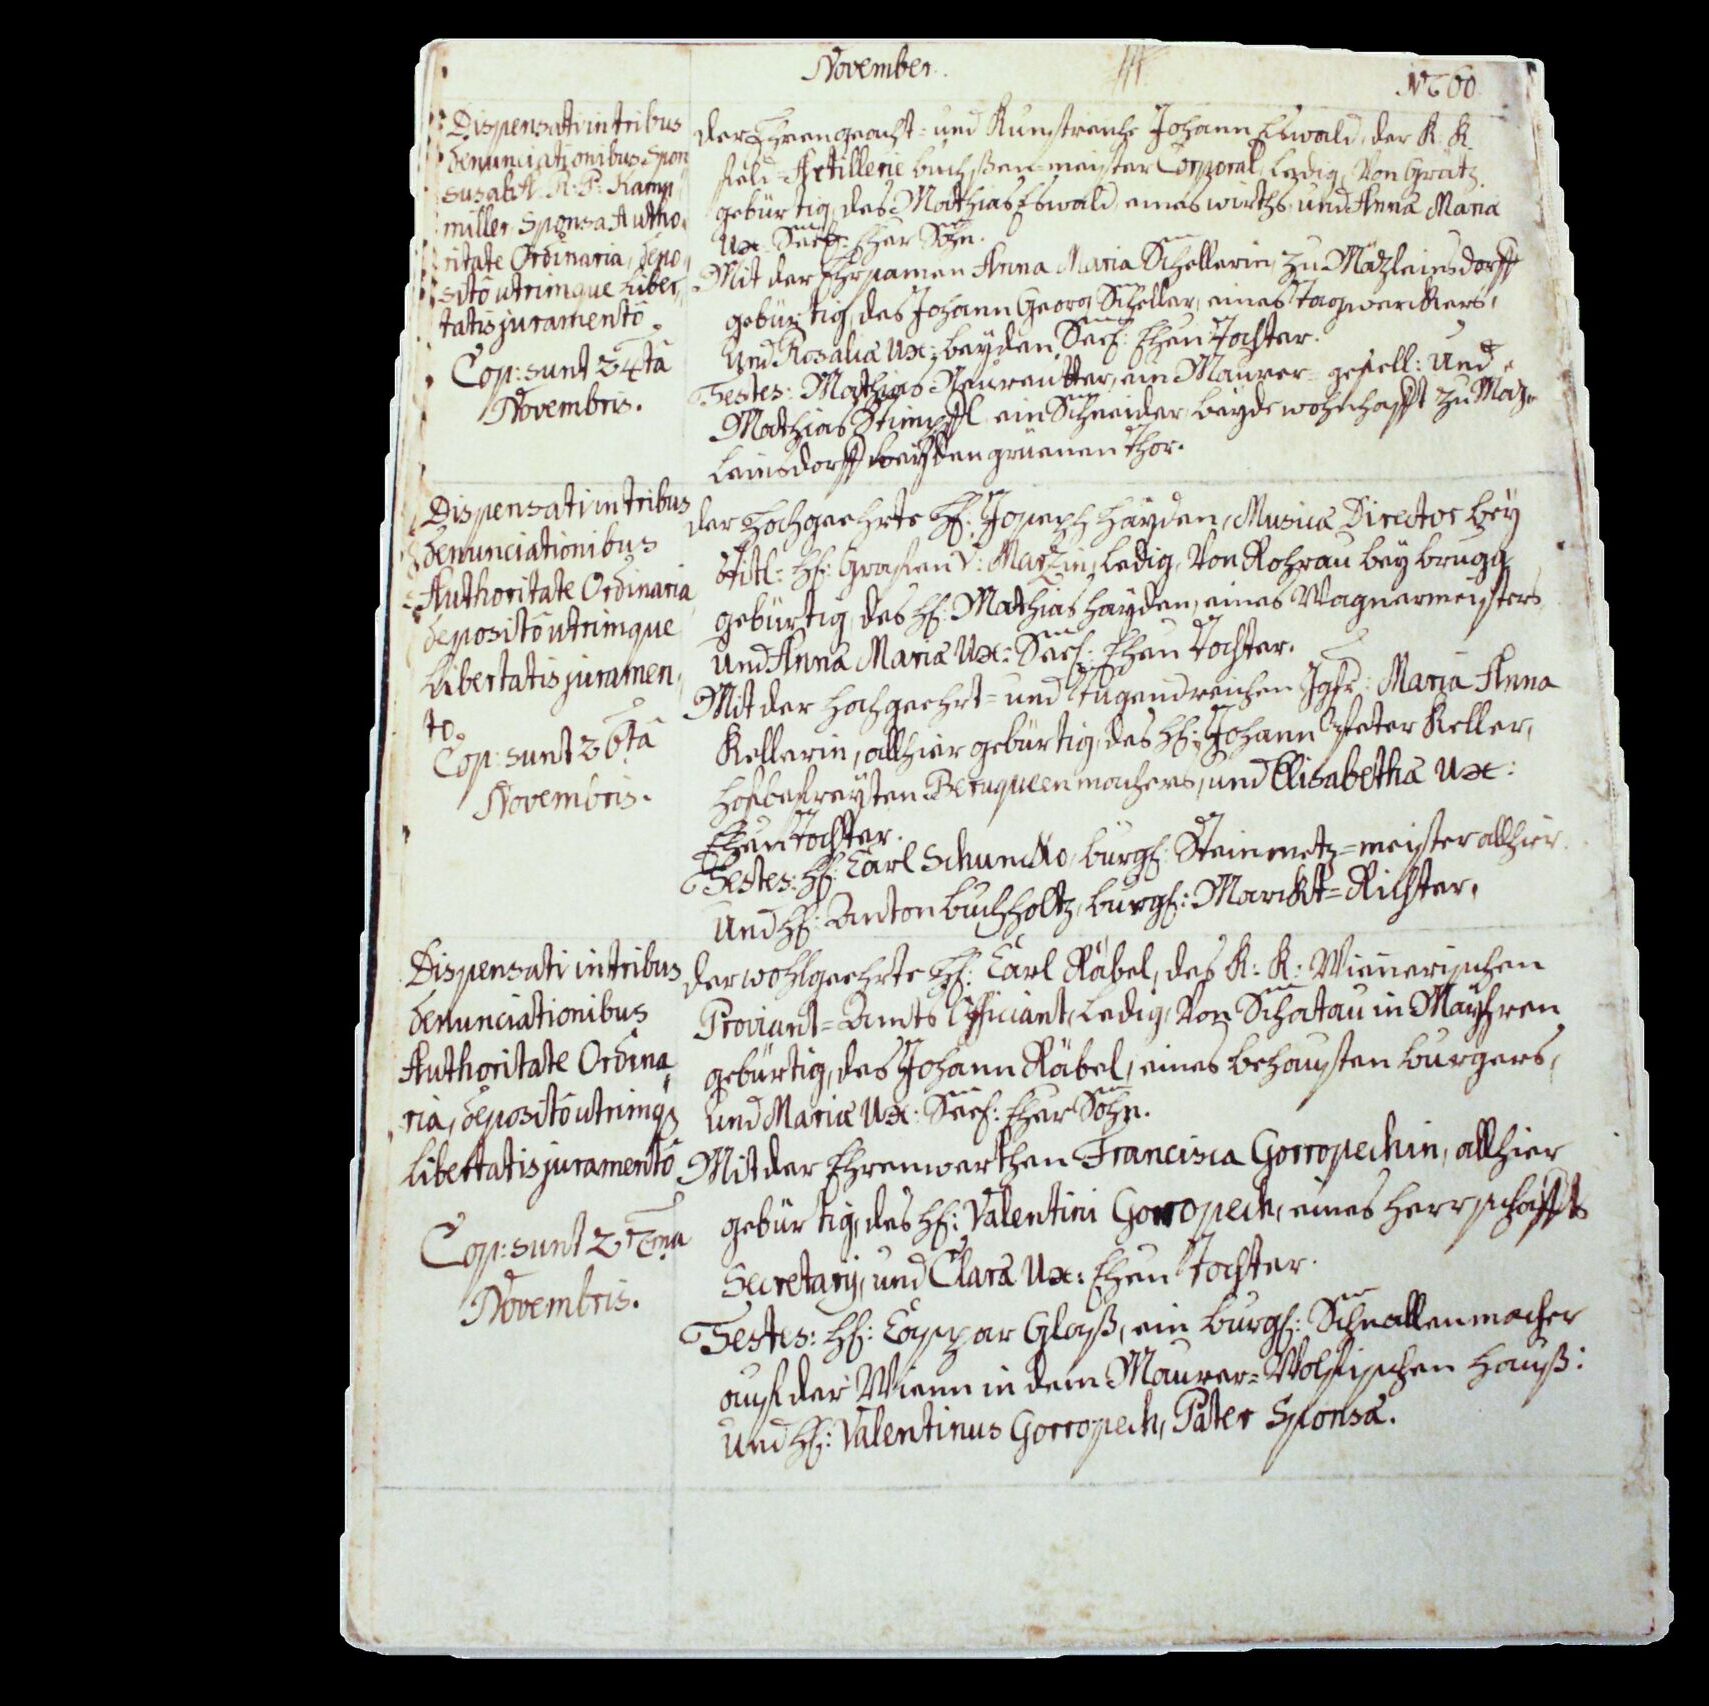 November.
1760
Dispensati in tribus
denunciationibus Spon
sus ab A. R. P. Kamp
miller Sponsa Autho,
ritate Ordinaria, depo,
sitô utrimque Liber,
tatis juramentô.
Cop: sunt 24tâ
Novembris.
der Ehrengeacht= und Kunstreiche Johann Eswald, der K. K.
Feld=Artillerie buchsßen=meister Corporal, ledig, Von Grätz
gebürtig, des Mathias Eswald, eines wirths, und Anna Maria
Ux: Seel: Eher Sohn.
Mit der Ehrsamen Anna Maria Schellerin, zu Mäzleinsdorff
gebürtig, des Johann Georg Scheller, eines Tagwerckers,
Und Rosaliæ Ux: beyden Seel: Ehen Tochter.
Testes: Mathias Neureutter, ein Maurer=gesell: Und
Mathias Stimpffl, ein Schneider, beyde wohnhafft zu Maz=
leinsdorff bey den grüenen Thor.
Dispensati in tribus
denunciationibus
Authoritate Ordinaria
depositô utrimque
Libertatis juramen,
to.
Cop: sunt 26tâ
Novembris.
der Hochgeehrte H: Joseph Hayden, Musicæ Director bey
Titl: H: Grafen v: Marzin, ledig, Von Rohrau bey brugg
gebürtig, des H: Mathias Hayden, eines Wagnermeisters
und Anna Maria Ux: Seel: Ehen Tochter.
Mit der Hochgeehrt= und Tugendreichen Jgfr: Maria Anna
Kellerin, allhier gebürtig, des H: Johann Peter Keller,
Hofbefreyten Peruqueenmachers, und Elisabethæ Ux:
Ehen Tochter.
Testes: H: Carl Schuncko, burgl: Steinmetz=meister allhier
Und H: Anton buchholtz, burgl: Marckt=Richter.
Dispensati in tribus
denunciationibus
Authoritate Ordina,
ria, depositô utrimq3
Libertatis juramentô
Cop: sunt 27ma
Novembris.
der wohlgeehrte H: Carl Räbel, des K: K: Wienerischen
Proviant=Amts Officiant, Ledig, Von Schatau in Mayhren
gebürtig, des Johann Räbel, eines behausten burgers,
Und Mariæ Ux: Seel: Eher Sohn.
Mit der Ehrenwerthen Francisca Gorropechin, allhier
gebürtig, des H: Valentini Gorropech, eines Herrschaffts
Secretarij, und Claræ Ux: Ehen Tochter.
Testes: H: Caspar Glaß, ein burgl: Schnallenmacher
auf der Wienn in dem Maurer=Wolfischen Hauß:
Und H: Valentinus Gorropech, Pater Sponsæ.